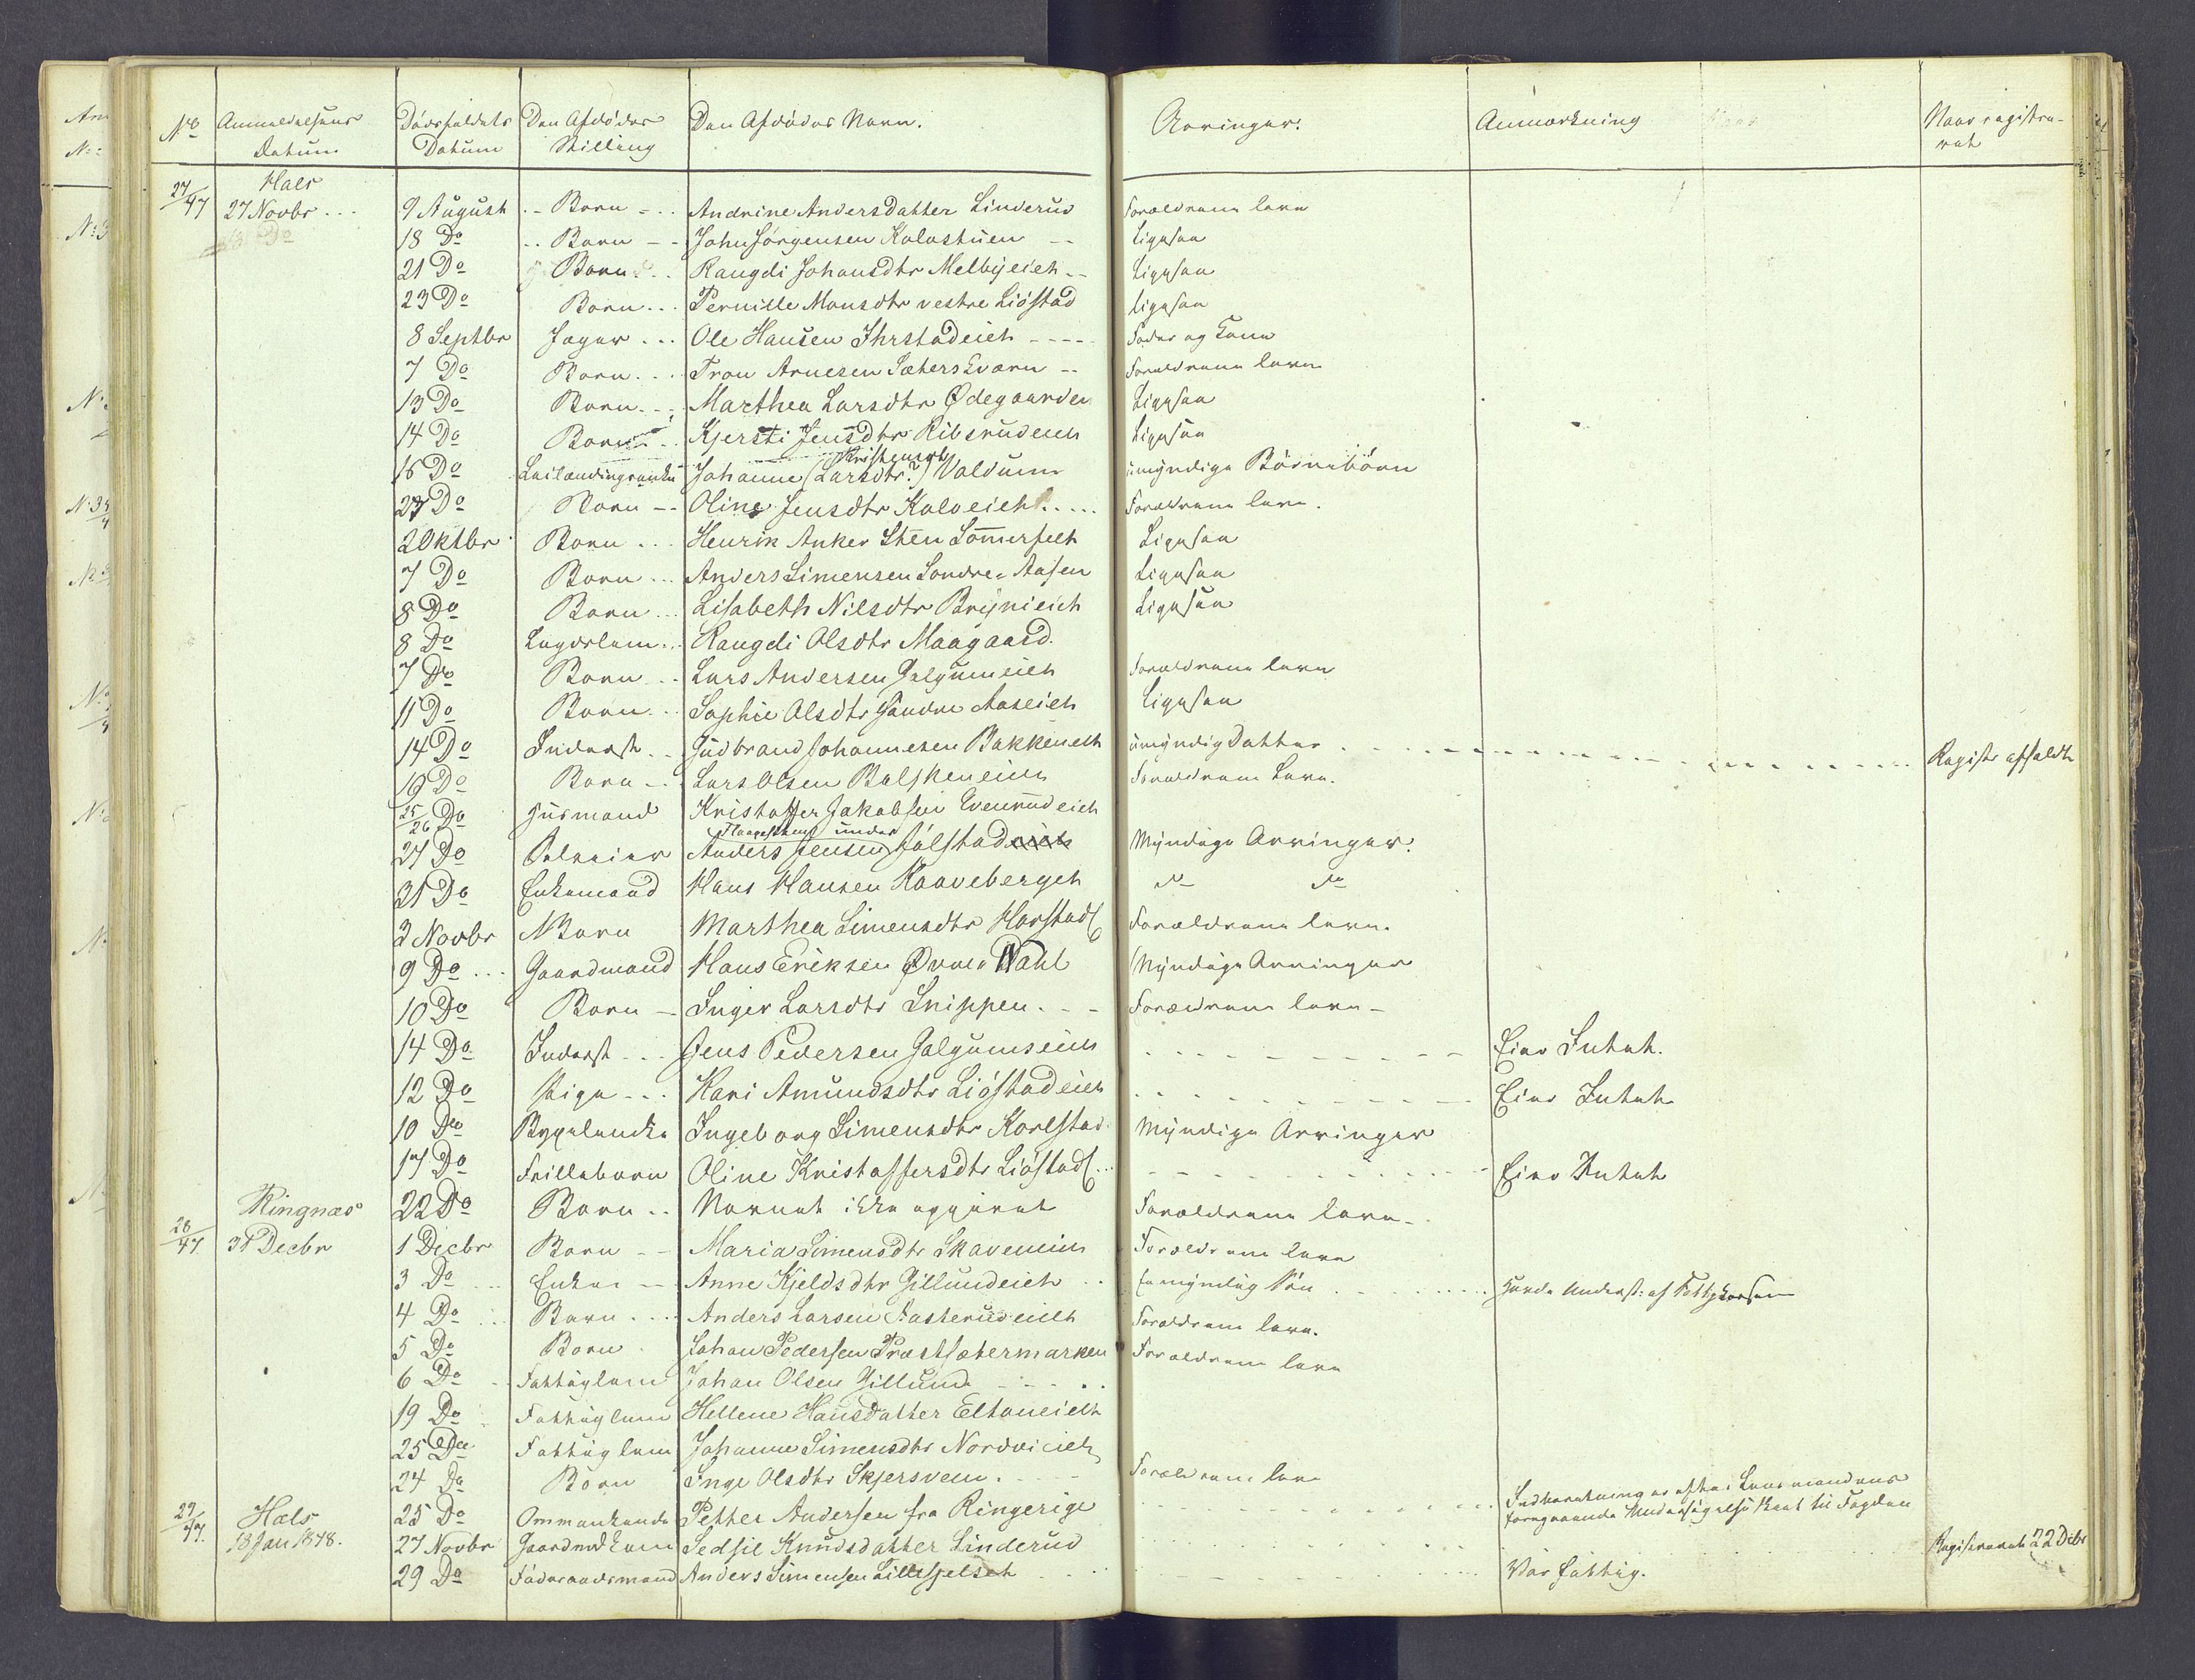 No Anmeldelsens Datum Dödsfaldets Datum Den Afdödes Stilling Den Afdödes Navn. Arvinger. Anmærkning Naar registreret
27/47 Hals 27 Novbr 9 August Barn Andrine Andersdatter Linderud Forældrene leve
18 Do Barn John Jörgensen Kolostuen Ligesaa
21 Do Barn Rangdi Johansdtr Melbyeiet Ligesaa
23 Do Barn Pernille Monsdtr vestre Liöstad Ligesaa
8 Septbr Jæger Ole Hansen Ihrstadeiet Fader og Kone
7 Do Barn Tron Arnesen Sæterskværn Forældrene leve
13 Do Barn Marthea Larsdtr Ødegaarden Ligesaa
14 Do Barn Kjersti Jensdtr Ribsrudeiet Ligesaa
16 Do Leilændingeenke Johanne (Larsdtr?) Kristensdtr Valdum umyndige Börnebörn
27 Do Barn Oline Jensdtr Koloeiet Forældrene leve.
2 Oktbr Barn Henrik Anker Sten Sommerfelt Ligesaa
7 Do Barn Anders Simensen Söndre Aasen Ligesaa
8 Do Barn Lisabeth Nilsdtr Brynieiet Ligesaa
8 Do Lægdslem Rangdi Olsdtr Maagaard.
7 Do Barn Lars Andersen Galgumeiet Forældrene leve
11 Do Barn Sophie Olsdtr Söndre Aaseiet Ligesaa
14 Do Inderst Gudbrand Johannesen Bakkeneiet umyndig Datter Registr affaldt
19 Do Barn Lars Olsen Balskeneiet Forældrene Leve.
25/26 Do Husmand Kristoffer Jakobsen Evenrudeiet
27 Do Anders Jensen Jölstad Myndige Arvinger.
31 Do Enkemand Hans Hansen Haaveberget Do Do
3 Novbr Barn Marthea Simensdtr Horstad Forældrene leve.
9 Do Gaardmand Hans Eriksen Øvre Dahl Myndige Arvinger
10 Do Barn Inger Larsdtr Snippen Forældrene leve
14 Do Inderst Jens Pedersen Galgumseiet Eier Intet.
12 Do Pige Kari Amundsdtr Liöstadeiet Eier Intet
10 Do Ingeborg Simensdtr Korlstad Myndige Arvinger
17 Do Frillebarn Oline Kristoffersdtr Liöstad Eier Intet
22 Do Barn Navnet ikke opgivet Forældrene leve
28/47 Ringnæs 31 Decbr 1 Decbr Barn Maria Simensdtr Skaveneiet Forældrene leve
3 Do Enke Anne Kjeldsdtr Gillundeiet En myndig Sön Havde Underst: af Fattigkassen
4 Do Barn Anders Larsen Fasterudeiet Forældrene leve.
5 Do Barn Johan Pedersen Præstsætermarken Forældrene leve
6 Do Fattiglem Johan Olsen Gillund
19 Do Fattiglem Hellene Hansdatter Eltoneiet
25 Do Fattiglem Johanne Simensdtr Nordvieiet
24 Do Barn Inge Olsdtr Skjersveen Forældrene leve
29/47 Hals 13 Jan 1848. 25 Do Ommankende Petter Andersen fra Ringerige Indberetning er efter Lensmandens foregaaende Undersögelse skeet til Fogden
27 Novbr Gaardmdkone Sedsil Knudsdatter Linderud Registreret 22 Dcbr
29 Do Föderaadsmand Anders Simensen Lillegjelset Var fattig.